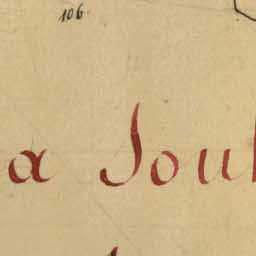 106
a Soul